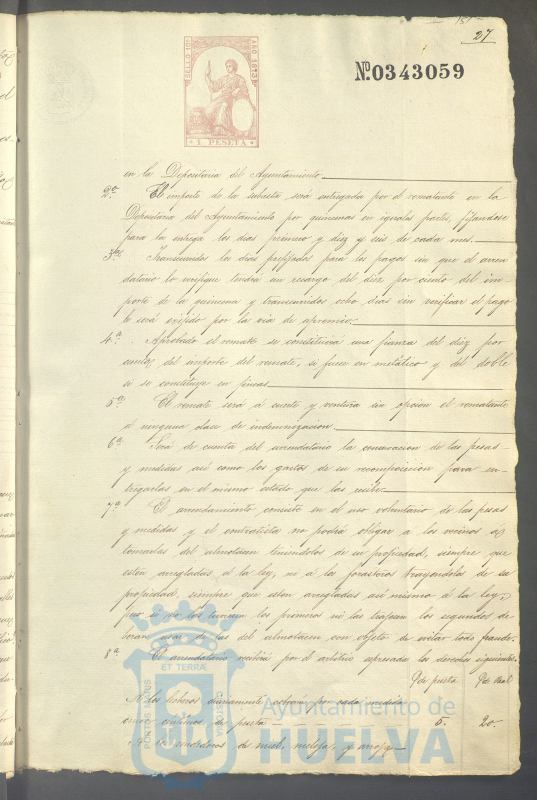 27
SELLO 11º AÑO 1873
1 PESETA
Nº.0343059
en la Depositaria del Ayuntamiento
2ª El importe de la subasta será entregada por el rematante en la
Depositaria del Ayuntamiento por quincenas en iguales partes, fijandose
para la entrega los dias primero y diez y seis de cada mes.
3ª Transcurridos los dias prefijados para los pagos sin que el arren
datario lo verifique tendrá un recargo del diez por ciento del im-
porte de la quincena y transcurridos ocho dias sin verificar el pago
le será exijido por la via de apremio.
4ª Aprobado el remate se constituirá una fianza del diez por
ciento del importe del remate, si fuese en metálico y del doble
si se constituye en fincas
5ª El remate será á suerte y ventura sin opcion el rematante
á ninguna clase de indemnizacion.
6ª Será de cuenta del arrendatario la conservacion de las pesas
y medidas asi como los gastos de su recomposicion para en-
tregarlas en el mismo estado que las recibe.
7ª El arrendamiento consiste en el uso voluntario de las pesas
y medidas y el contratista no podrá obligar a los vecinos a
tomarlas del almotacen teniéndolas de su propiedad, siempre que
estén arregladas á la ley, ni á los forasteros trayendolas de su
propiedad, siempre que esten arregladas asi mismo á la ley;
pero si no las tuviesen los primeros ni las trajesen los segundos de
berán usar de las del almotacen con objeto de evitar todo fraude.
8ª El arrendatario recibirá por el arbitrio espresado los derechos siguientes.
Ps de peseta Cs de real
A los diariamente por cada medida
cinco centimos de peseta 5. 20.
A los de miel, meloja, y arrope
PORTUS MARIS ET TERRÆ CUSTODIA
Ayuntamiento de
HUELVA